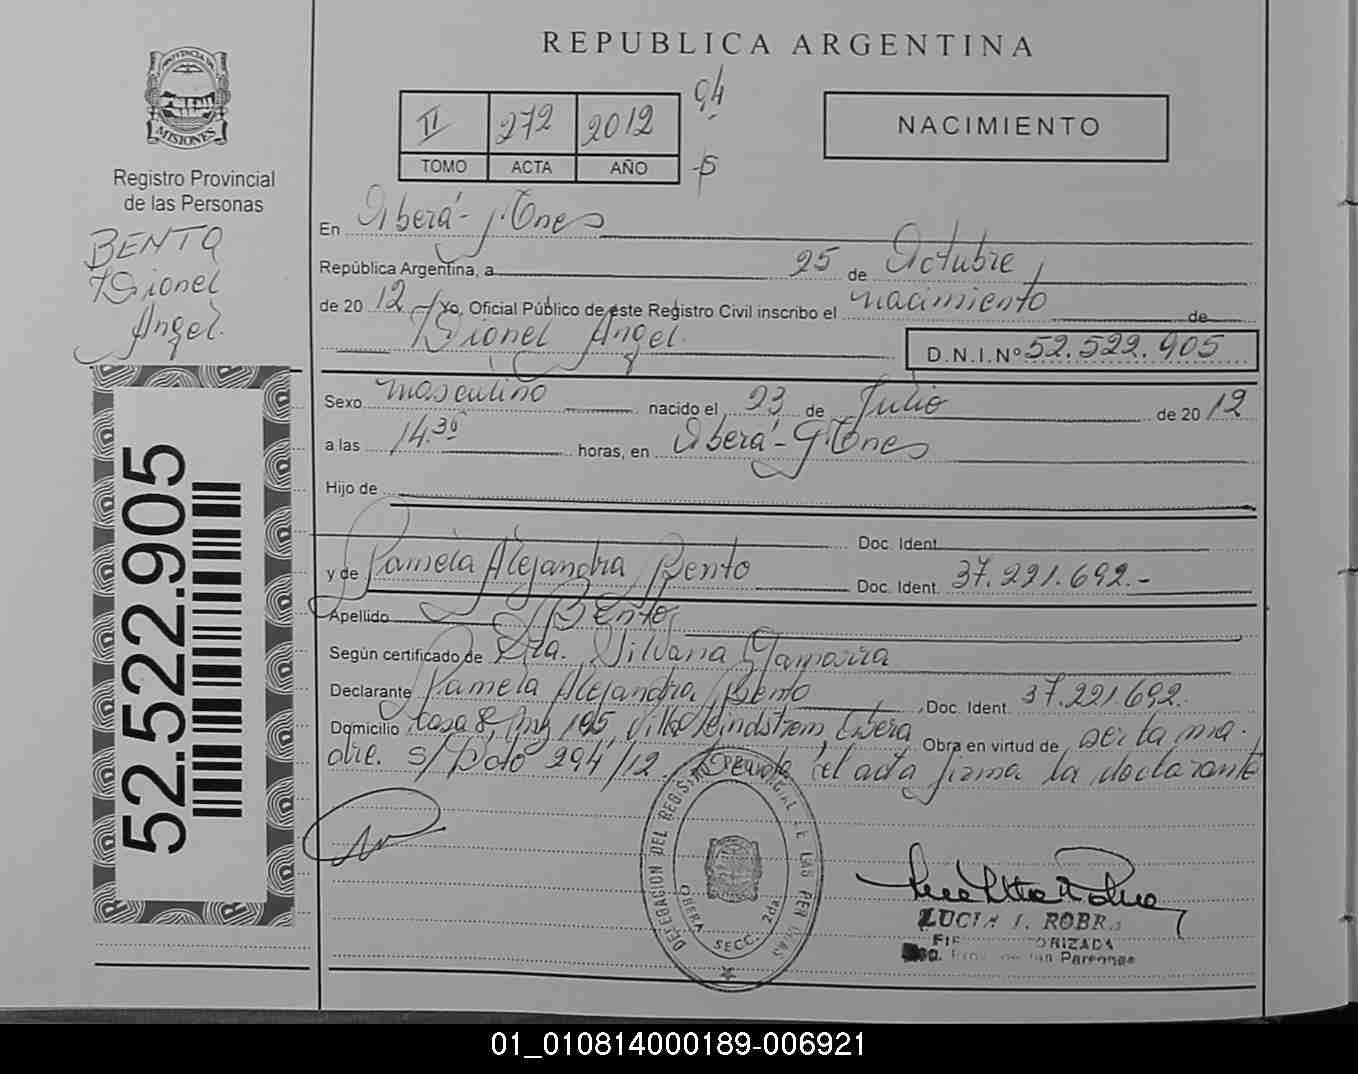 REPUBLICA ARGENTINA
PROVINCIA DE
MISIONES
Registro Provincial
de las Personas
BENTO
Dionel
Angel.
52.522.905
II 272 2012 94
TOMO ACTA AÑO
NACIMIENTO
En Oberá - Mnes
República Argentina, a 25 de Octubre
de 2012 Yo, Oficial Público de este Registro Civil inscribo el nacimiento de
Dionel Angel. D.N.I.Nº 52.522.905
Sexo masculino nacido el 23 de Julio de 2012
a las 14.30 horas, en Oberá - Mnes
Hijo de
Doc. Ident.
y de Pamela Alejandra Bento Doc. Ident. 37.221.692.-
Apellido Bento
Según certificado de Dra. Silvana Gamarra
Declarante Pamela Alejandra Bento Doc. Ident. 37.221.692.
Domicilio Casa 8, Mz 195, Villa Lindstrom, Oberá Obra en virtud de ser la ma-
dre. s/ Dcto 294/12. el acta firma la declarante
DELEGACION DEL REGISTRO PROVINCIAL DE LAS PERSONAS
OBERA SECC. 2da.
LUCIA I. ROBR
ORIZADA
Prov. de las Personas
01_010814000189-006921